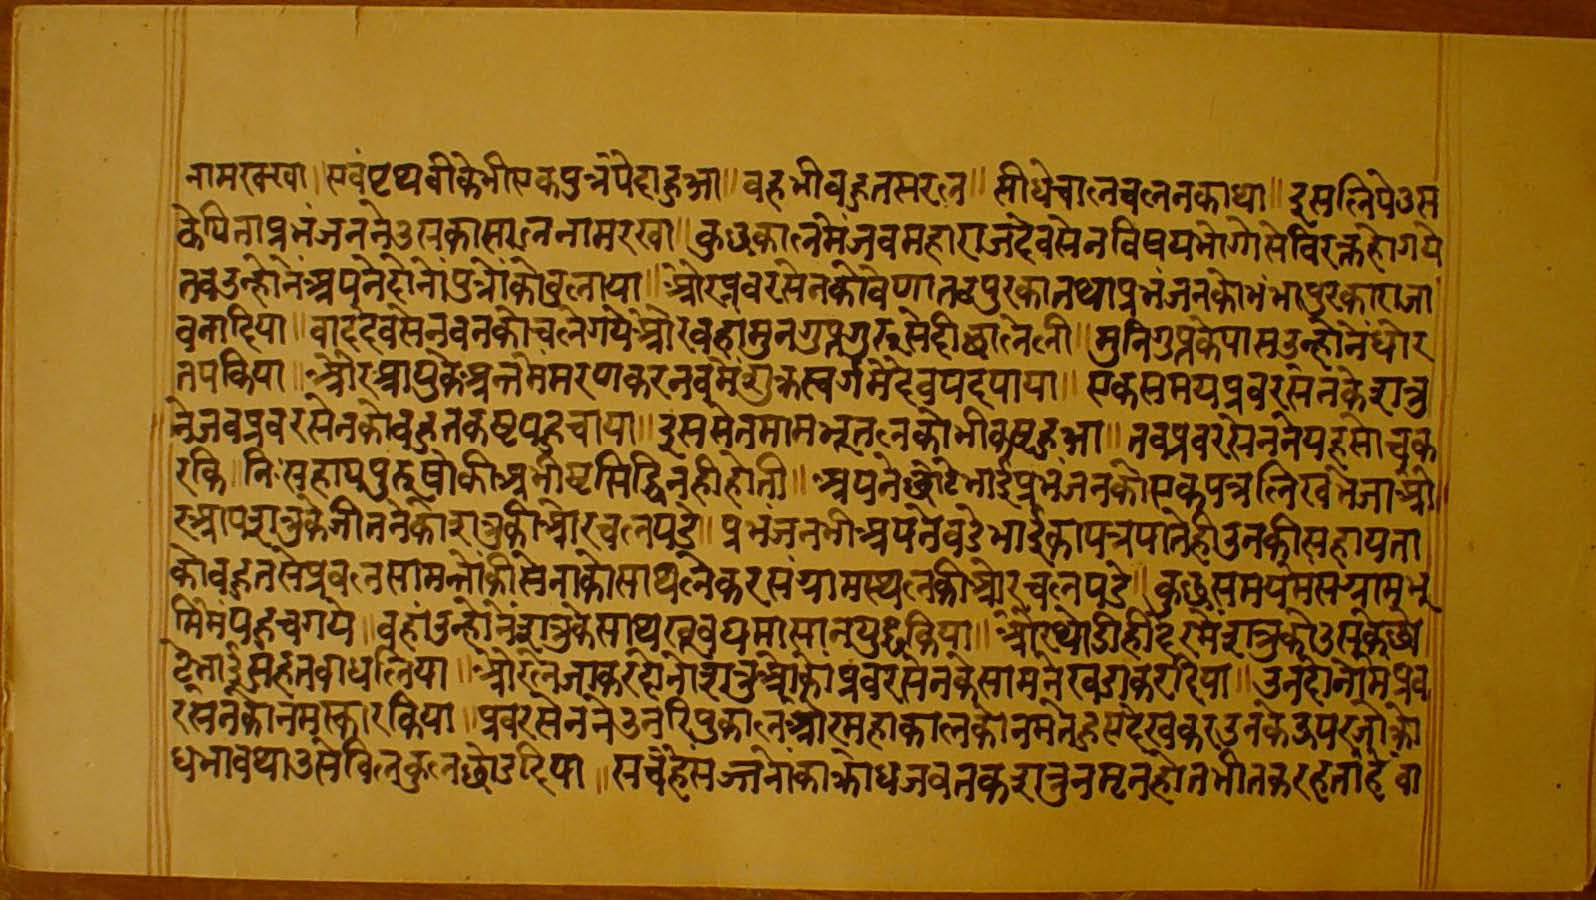 नामरक्खा॥ सवंपृथवीकेभीएकपुत्रपैदाहुआ॥ वहभीबहुतसरल॥ सीधेचालचलनकाथा॥ इसलियेउस
केपिताप्रभंजननेउसकासरलनामरखा॥ कुछकालमेंजवमहाराजदेवसेनविषयभोगोंसेविरक्तहोगये
तबउन्होंनेअपनेदोनोंपुत्रोंकोबुलाया॥ औरप्रवरसेनकोवेणातटपुरकातथाप्रभंजनकोभंभापुरकाराजा
वनादिया॥ वाददेवसेनवनकोचलेगयेऔरवहामुनगुप्तगुरुसेदीक्षालेली॥ मुनिगुप्तकेपासउन्होंनेघोर
तपकिया॥ औरआयुकेअन्तमेंमरणकरनवमेंशुक्रस्वर्गमेंदेवपदपाया॥ एकसमयप्रवरसेनकेशत्रु
नेजबप्रवरसेनकोबहुतकष्टपहुचाया॥ इससेतमामभूतलकोभीकष्टहुआ॥ तवप्रवरसेननेयहसोचक
रकि॥ निःसहायपुरुषोंकीअभीष्टसिद्धिनहीहोती॥ अपनेछोटेभाईप्रभंजनकोएकपत्रलिखभेजाऔ
रआपशत्रुकेजीतनेकोशत्रुकीओरचलपडे॥ प्रभंजनभीअपनेवडेभाईकापत्रपातेहीउनकीसहायता
कोबहुतसेप्रवलसामन्तोंकीसेनाकोसाथलेकरसंग्रामस्थलकीओरचलपडे॥ कुछसमयमेंसंग्रामभू
मिमेंपहुचगये॥ वहांउन्होंनेशत्रुकेसाथखूबघमासानयुद्धकिया॥ औरथोडीहीदेरमेंशत्रुकोउसकेछो
टेभाईसहितवाधलिया॥ औरलेजाकरदोनोशत्रुओंकोप्रवरसेनकेसामनेखडाकरदिया॥ उनदोनोंमेंप्रव
रसेनकोनमस्कारकिया॥ प्रवरसेननेउनरिपुकालऔरमहाकालकोनमतेहुएदेखकरउनकेऊपरजोक्रो
धभावथाउसेविलकुलछोडदिया॥ सचहैसज्जनोंकाक्रोधजवतकशत्रुनम्रनहोतभीतकरहताहै वा